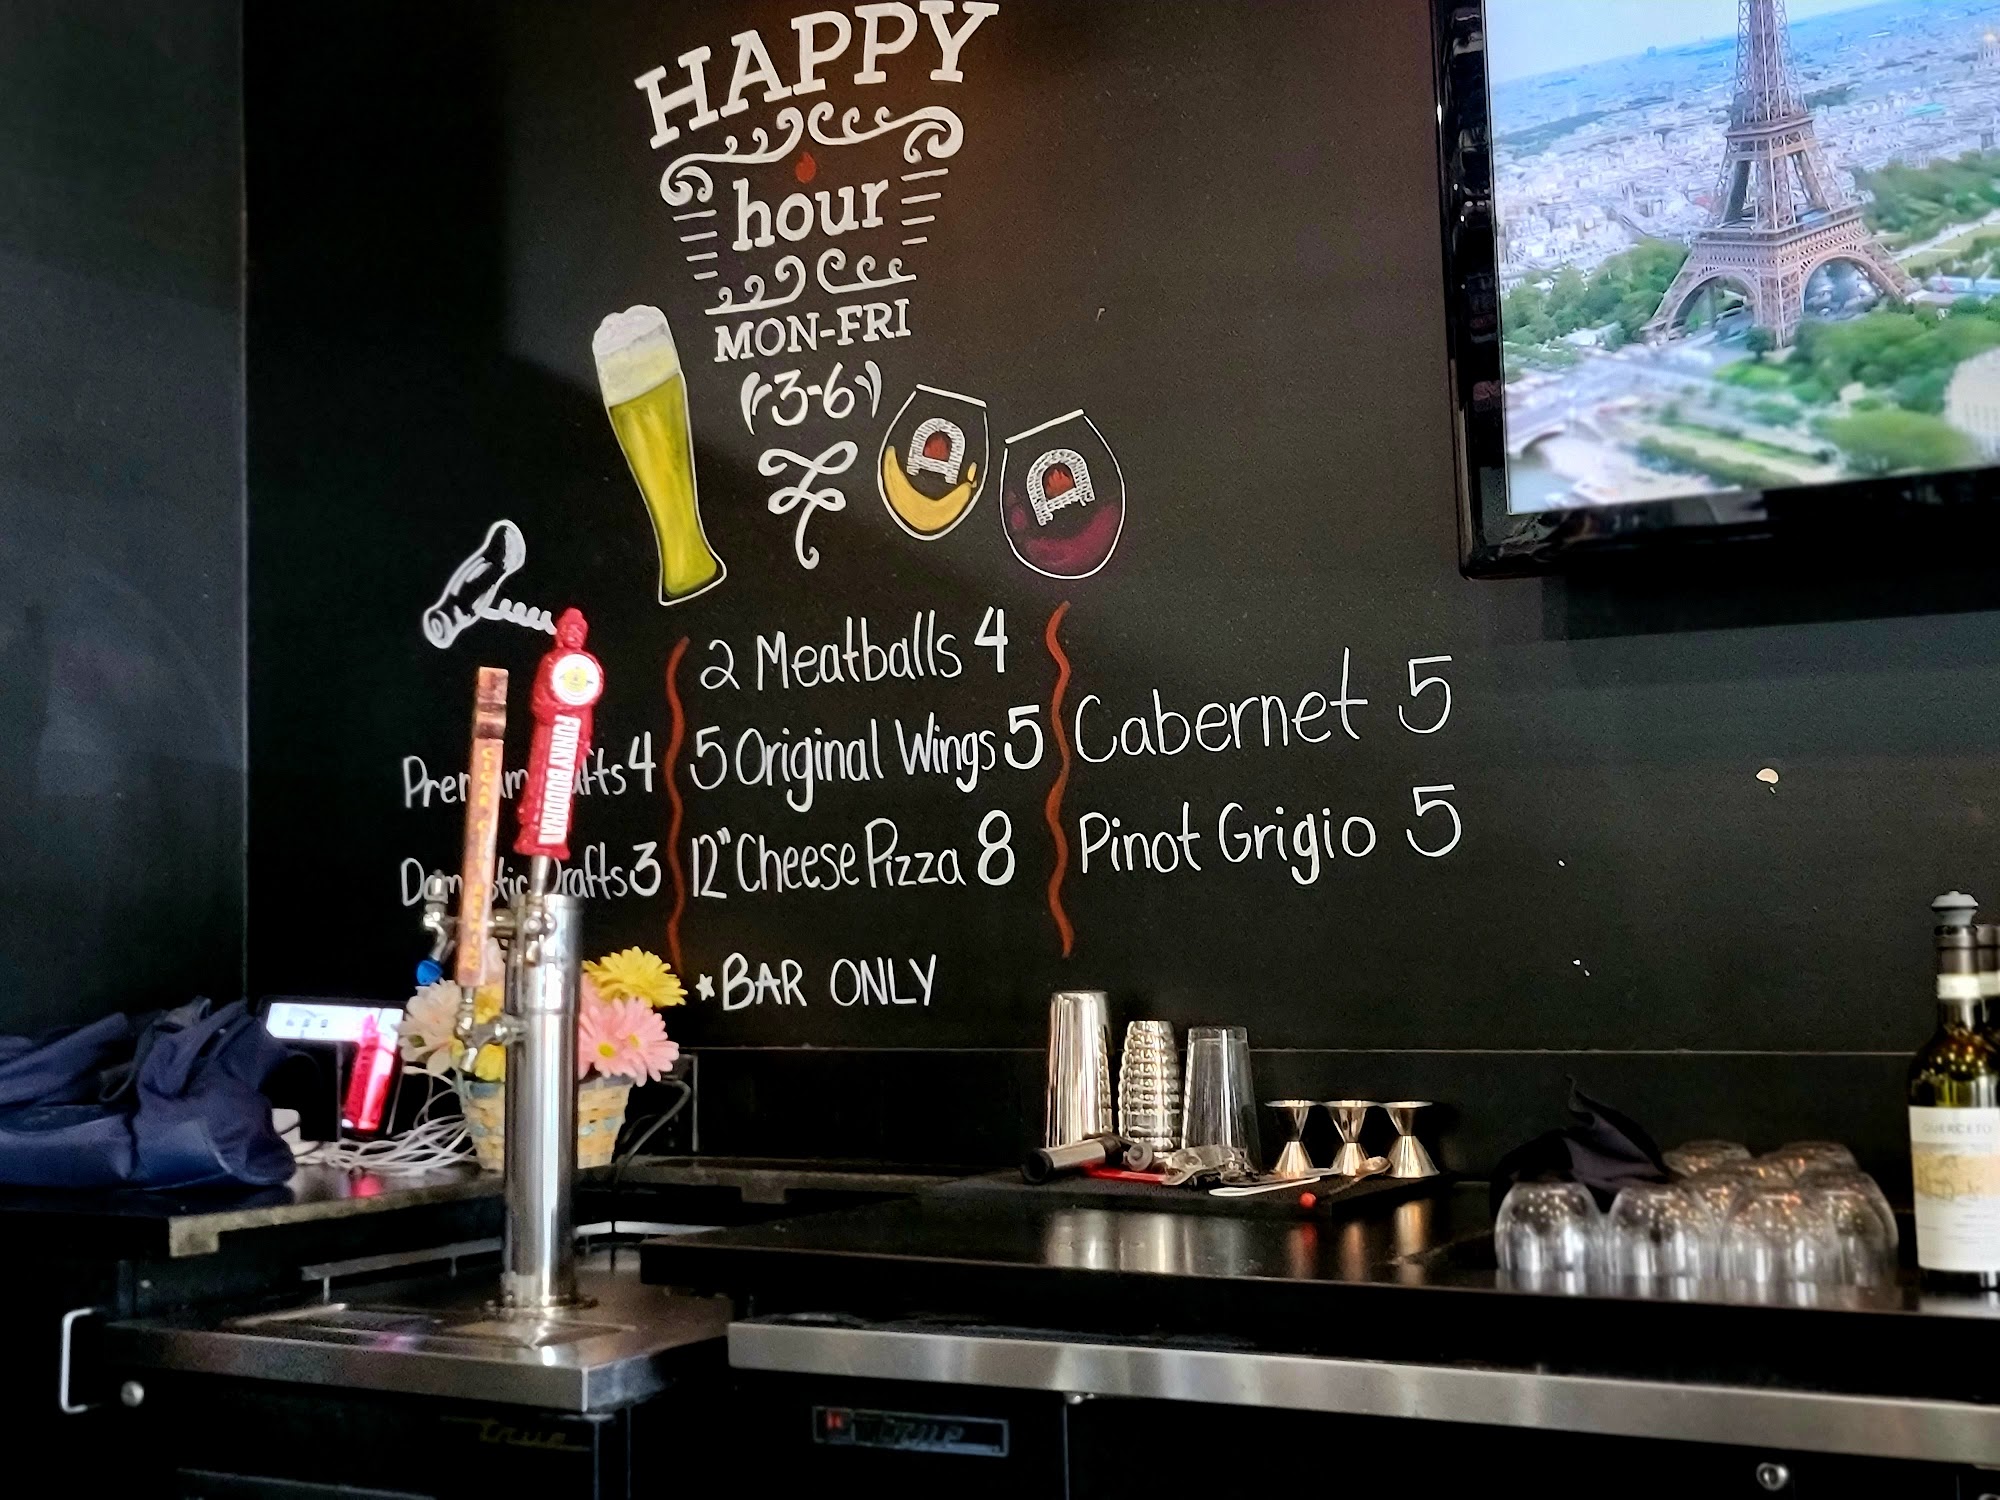 HAPPY
hour
MON-FRI
3-6
Premium Drafts 4
Domestic Drafts 3
2 Meatballs 4
5 Original Wings 5
12" Cheese Pizza 8
*BAR ONLY
Cabernet 5
Pinot Grigio 5
FUNKY BUDDHA
CIGAR CITY
QUERCETO
true
true